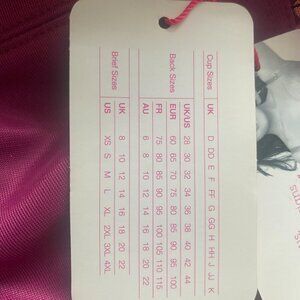 Cup Sizes UK D DD E F FF G GG H HH J JJ K
Back Sizes UK/US 28 30 32 34 36 38 40 42 44
EUR 60 65 70 75 80 85 90 95 100
FR 75 80 85 90 95 100 105 110 115
AU 6 8 10 12 14 16 18 20 22
Brief Sizes UK 8 10 12 14 16 18 20 22
US XS S M L XL 2XL 3XL 4XL